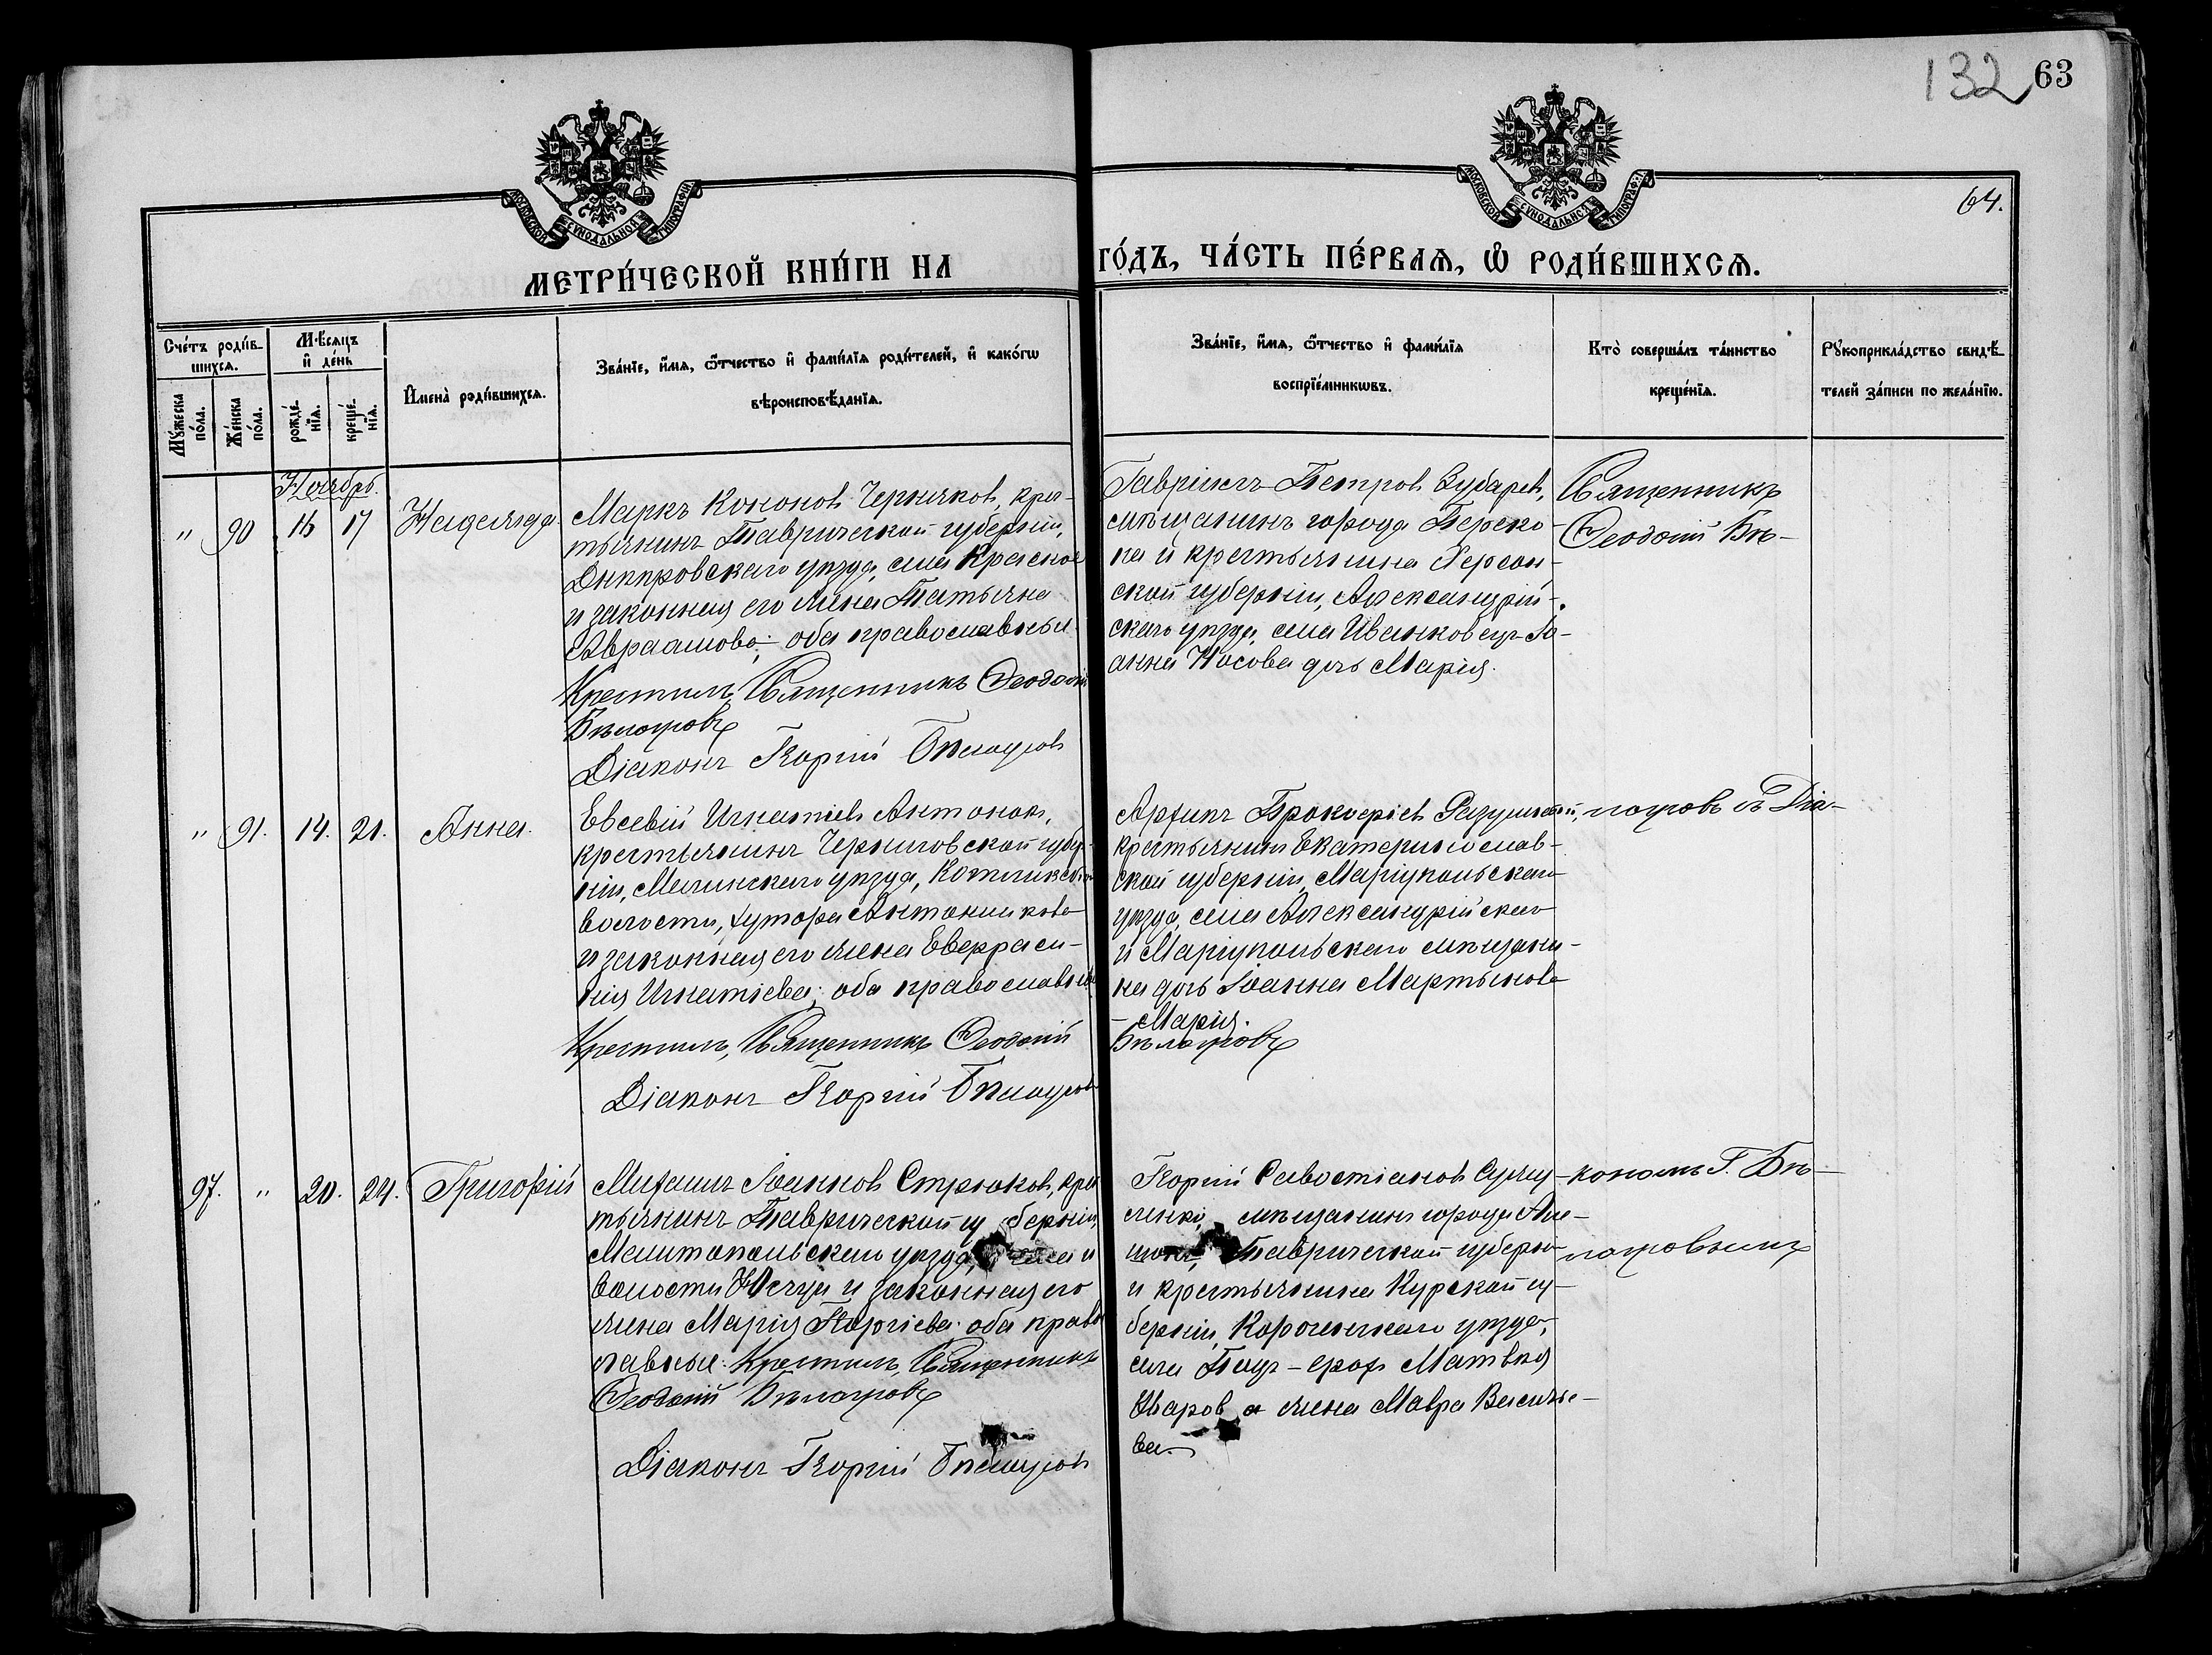 132 63
64.
МОСКОВСКОЙ СѴНОДАЛЬНОЙ ТИПОГРАФІИ
МОСКОВСКОЙ СѴНОДАЛЬНОЙ ТИПОГРАФІИ
МЕТРИ́ЧЕСКОЙ КНИ́ГИ НА
ГО́ДЪ, ЧА́СТЬ ПЕ́РВАѦ, Ѽ РОДИ́ВШИХСѦ.
Сче́тъ роди́в-
шихсѧ.
Мꙋ́жеска
по́ла.
Же́нска
по́ла.
Мѣ́сѧцъ
и҆ де́нь
рожде́-
нїѧ.
креще́-
нїѧ.
И҆мена̀ роди́вшихсѧ.
Зва́нїе, и҆́мѧ, ѻ҆́тчество и҆ фами́лїѧ роди́телей, и҆ како́гѡ
вѣроисповѣ́данїѧ.
Зва́нїе, и҆́мѧ, ѻ҆́тчество и҆ фами́лїѧ
воспрїе́мникѡвъ.
Кто̀ соверша́лъ та́инство
креще́нїѧ.
Рꙋкоприкла́дство свидѣ́-
телей за́писи по жела́нїю.
Ноябрь.
" 90 16 17 Надежда
Маркъ Кононовъ Черняковъ, крес-
тьянинъ Таврической губерніи,
Днѣпровскаго уѣзда, села Красное
и законная его жена Татьяна
Авраамова; оба православные.
Крестилъ, Священникъ Ѳеодосій
Бѣлоусовъ
Діаконъ Георгій Бѣлоусовъ
Гавріилъ Петровъ Зубаревъ,
мѣщанинъ города Переко-
па и крестьянина Херсон-
ской губерніи, Александрій-
скаго уѣзда, села Іо-
анна Носова дочь Марія.
Священникъ
Ѳеодосій Бѣ-
" 91. 14. 21. Анна.
Евсевій Игнатіевъ Антонов,
крестьянинъ Черниговской губер-
ніи, Мглинскаго уѣзда,
волости, хутора
и законная его жена
Игнатіева; оба православные
Крестилъ, Священникъ Ѳеодосій
Бѣлоусовъ
Діаконъ Георгій Бѣлоусовъ
Архипъ Прокофіевъ
крестьянинъ Екатеринослав-
ской губерніи, Маріупольскаго
уѣзда, села Александрійскаго
и Маріупольскаго мѣщани-
на дочь Іоанна Мартынова
- Марія.
лоусовъ съ Діа-
97. " 20. 24. Григорій
Михаилъ Іоанновъ Стрюковъ, крес
тьянинъ Таврической губерніи,
Мелитопольскаго уѣзда, села и
волости и законная его
жена Марія Георгіева: оба право
славные. Крестилъ, Священникъ
Ѳеодосій Бѣлоусовъ
Діаконъ Георгій Бѣлоусовъ
Георгій Савостіановъ
мѣщанинъ города Але-
Таврической губерніи
и крестьянина Курской гу-
берніи, Корочанскаго уѣзда,
села Матвѣя
Уварова жена Мавра Василье-
ва.
кономъ Г. Бѣ-
лоусовымъ